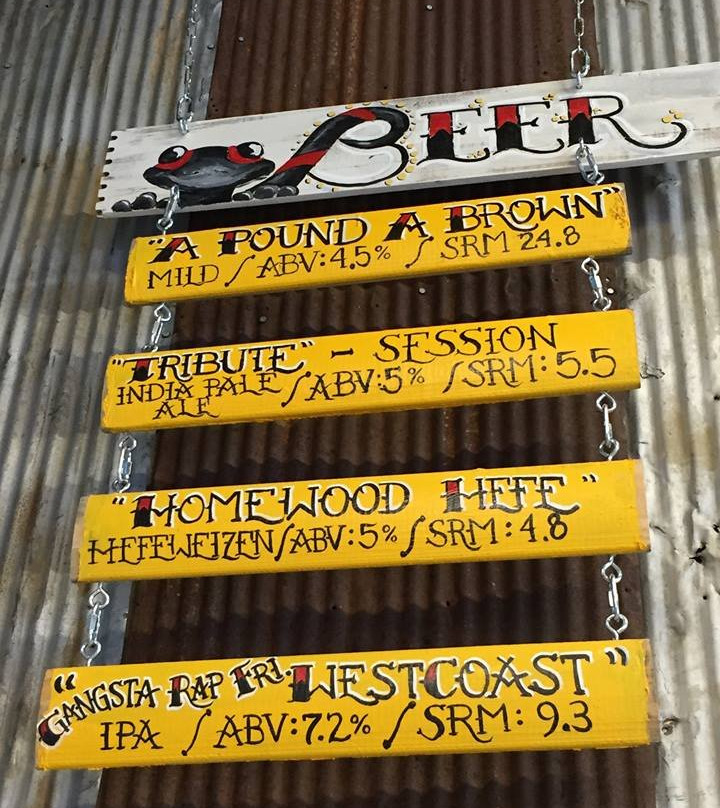 BEER
"A POUND A BROWN"
MILD / ABV:4.5% / SRM 24.8
"TRIBUTE" - SESSION
INDIA PALE ALE / ABV:5% / SRM: 5.5
"HOMEWOOD HEFE"
HEFEWEIZEN / ABV:5% / SRM: 4.8
"GANGSTA RAP FRI. WESTCOAST"
IPA / ABV:7.2% / SRM: 9.3